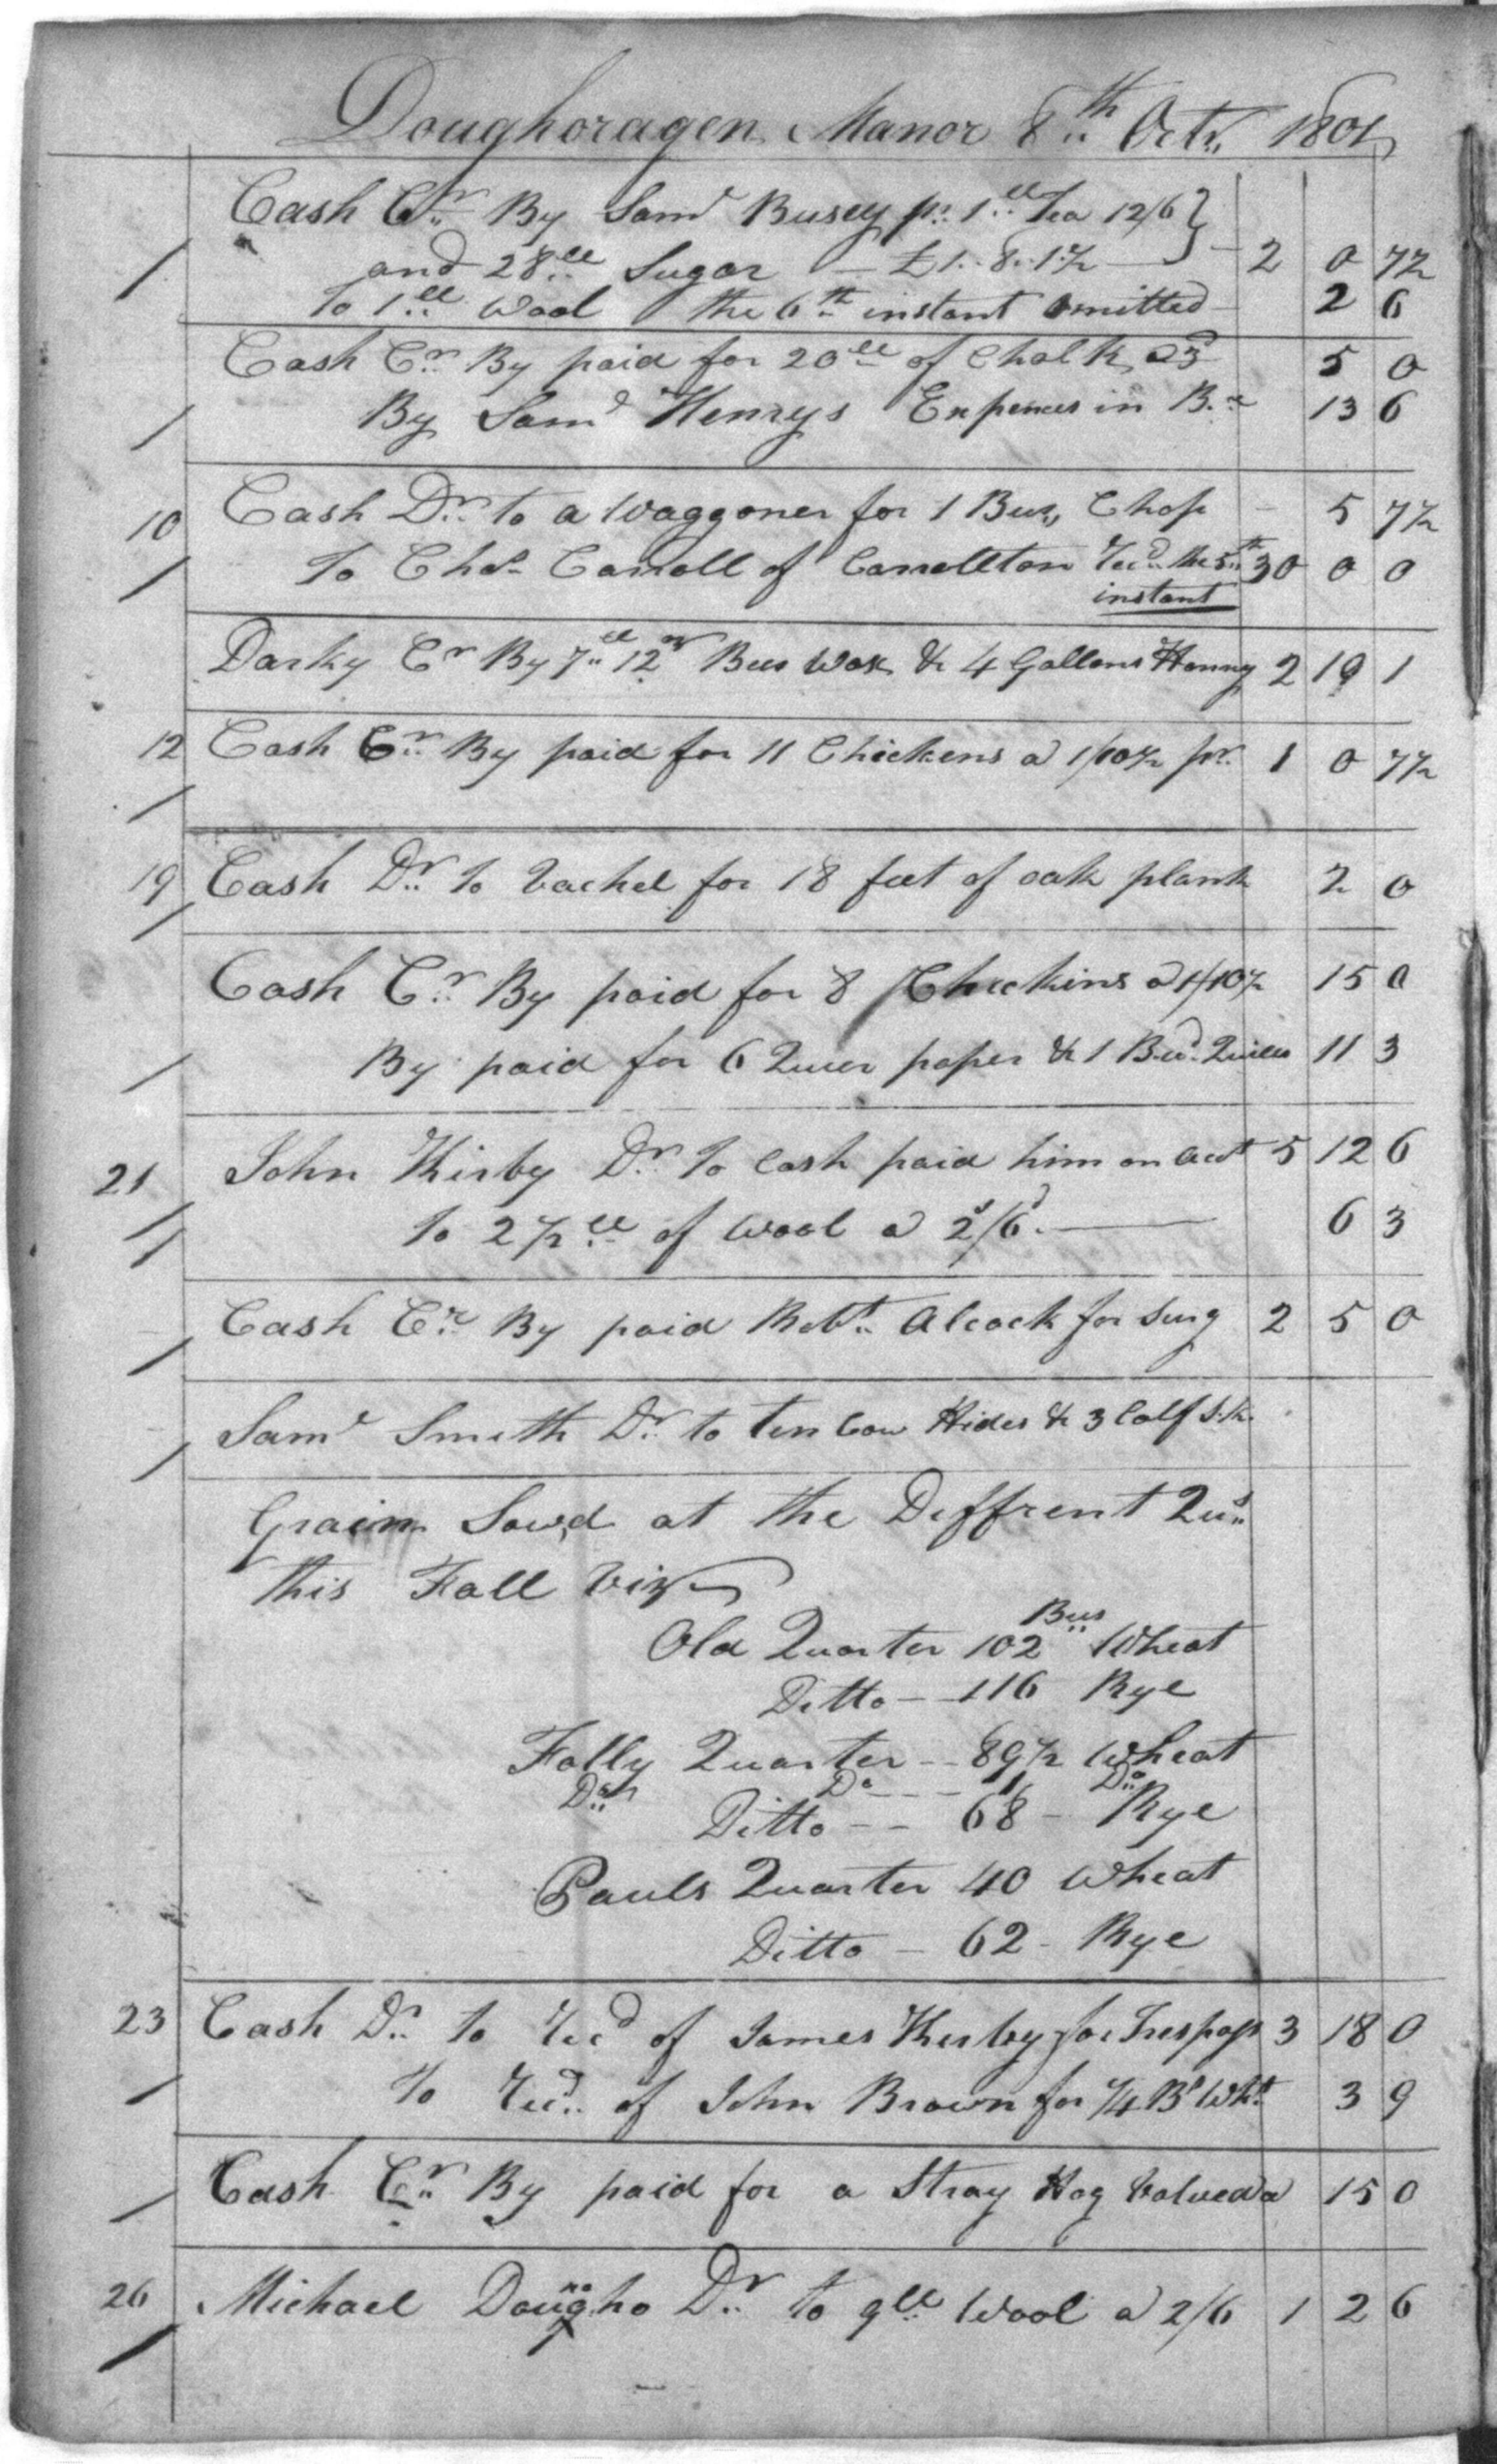 Doughoragen Manor 8th Octr 1801
Cash Cr By Saml Busey pr 1ll Tea 12/6
and 28ll Sugar £1..8..1½ 2 0 7½
To 1ll Wool the 6th instant omitted 2 6
Cash Cr By paid for 20ll of Chalk a 3d 5 0
By Saml Henrys Expences in B.re 13 6
10 Cash Dr to a Waggoner for 1 Bus, Chop 5 7½
To Chas Carroll of Carrollton Recd the 5th 30 0 0
instant
Darky Cr By 7ll 12oz Bees Wax & 4 Gallons Honny 2 19 1
12 Cash Cr By paid for 11 Chickens a 1/10½ pr 1 0 7½
19 Cash Dr To Vachel for 18 feet of oak plank 2 0
Cash Cr By paid for 8 Chickins a 1/10½ 15 0
By paid for 6 Quier paper & 1 Bud Quills 11 3
21 John Kirby Dr To Cash paid him on Acct 5 12 6
To 2½ ll of Wool a 2s/6d 6 3
Cash Cr By paid Robt Alcock for Surg 2 5 0
Saml Smith Dr to ten Cow Hides & 3 Calf Sk.
Grain Sowd at the Diffrent Qurs
this Fall Viz
Old Quarter 102 Bus Wheat
Ditto 116 Rye
Folly Quarter 89½ Wheat
Do Do 1 Do
Ditto 68 Rye
Pauls Quarter 40 Wheat
Ditto 62 Rye
23 Cash Dr to Recd of James Kirby for Trespass 3 18 0
To Recd of John Brown for ¼ Bs Wht 3 9
Cash Cr By paid for a Stray Hog Valued a 15 0
26 Michael Dougho Dr to 9ll Wool a 2/6 1 2 6